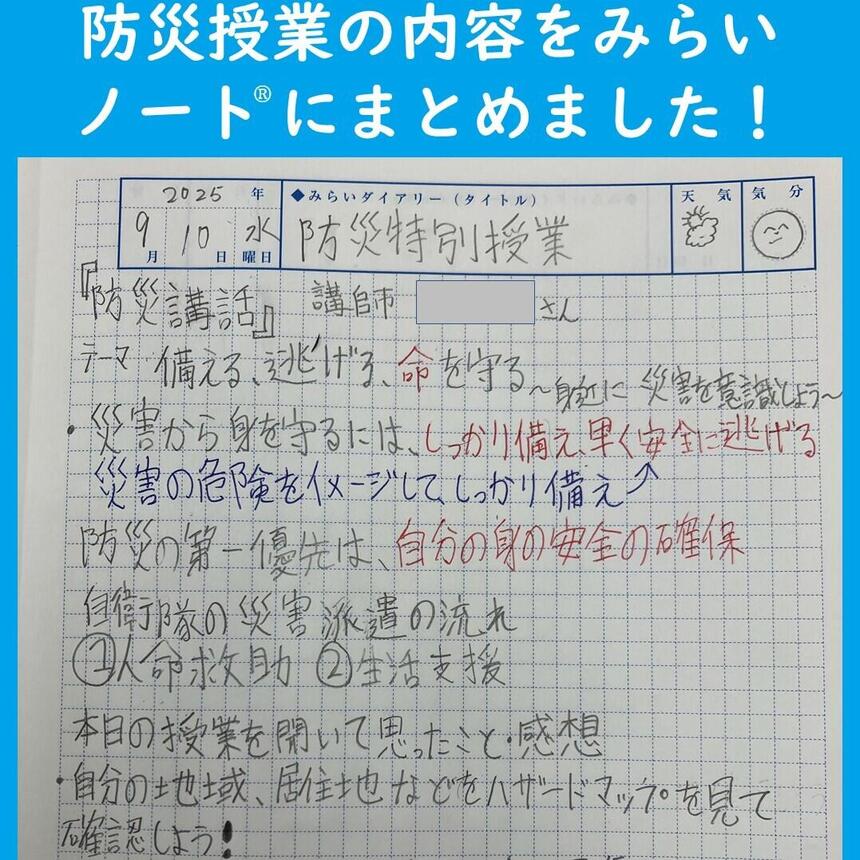 防災授業の内容をみらい
ノート®にまとめました！
2025 年
9月 10日 水曜日
◆みらいダイアリー（タイトル）
防災特別授業
天気
気分
『防災講話』 講師 さん
テーマ 備える、逃げる、命を守る
～身近に 災害を意識しよう～
・災害から身を守るには、しっかり備え、早く安全に逃げる
災害の危険をイメージして、しっかり備え
防災の第一優先は、自分の身の安全の確保
自衛隊の災害派遣の流れ
①人命救助 ②生活支援
本日の授業を聞いて思ったこと・感想
・自分の地域、居住地などをハザードマップを見て
確認しよう！